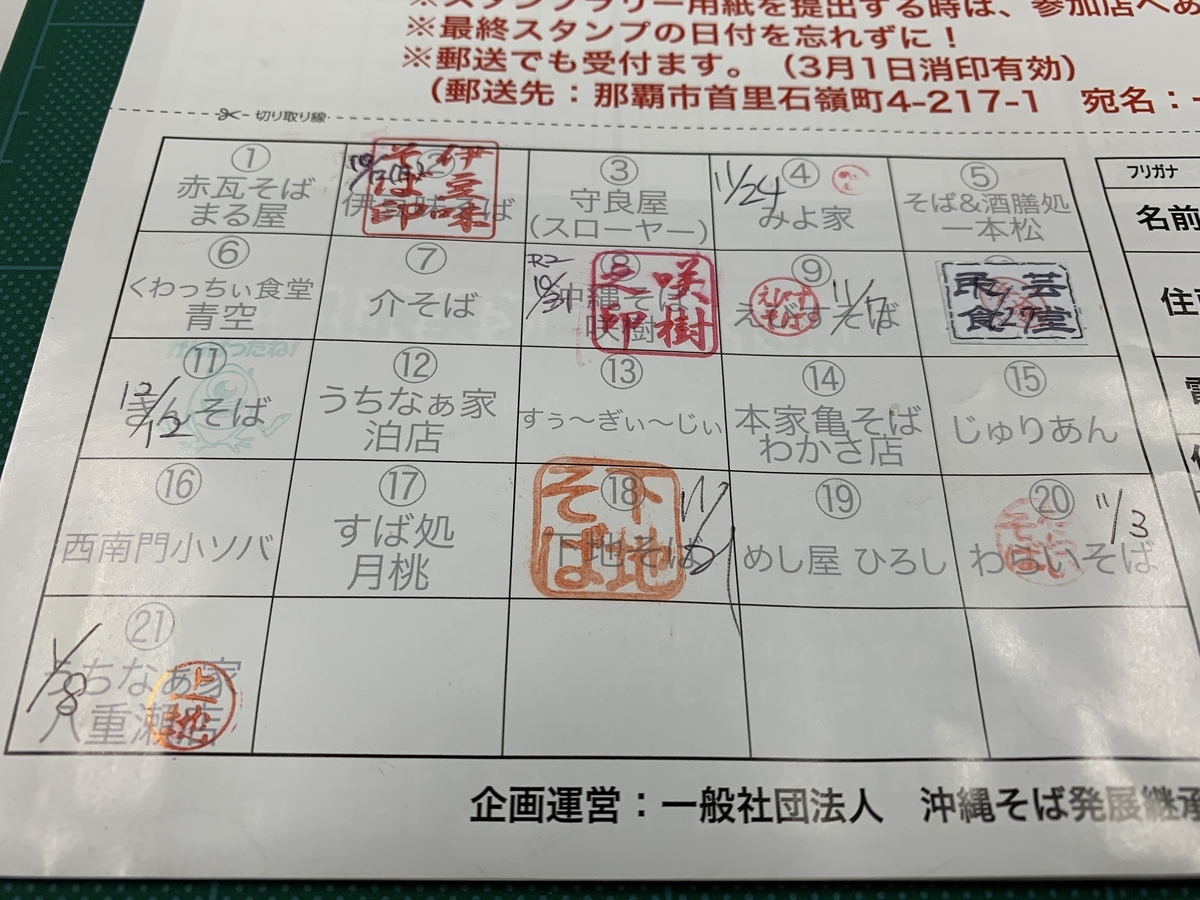 ※スタンプラリー用紙を提出する時は、参加店へあ
※最終スタンプの日付を忘れずに！
※郵送でも受付ます。（3月1日消印有効）
（郵送先：那覇市首里石嶺町4-217-1 宛名：一
切り取り線
①
赤瓦そば
まる屋
伊豆味
そば印
そば
③
守良屋
(スローヤー)
11/24
④
みよ家
⑤
そば&酒膳処
一本松
フリガナ
名前
⑥
くわっちぃ食堂
青空
⑦
介そば
R2
⑧
沖縄そば
咲樹
咲樹
之印
⑨
えびすそば
えびす
そば
11/17
食堂
⑪
そば
12/12
⑫
うちなぁ家
泊店
⑬
すぅ〜ぎぃ〜じぃ
⑭
本家亀そば
わかさ店
⑮
じゅりあん
⑯
西南門小ソバ
⑰
すば処
月桃
⑱
下地そば
下地
そば
⑲
めし屋 ひろし
⑳
わらいそば
11/3
㉑
うちなぁ家
八重瀬店
上地
1/8
企画運営：一般社団法人 沖縄そば発展継承